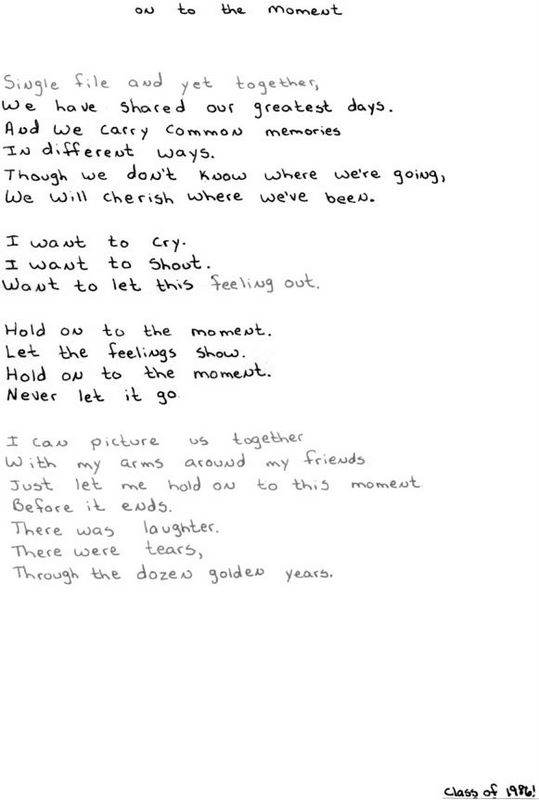 on to the moment
Single file and yet together,
We have shared our greatest days.
And we carry common memories
In different ways.
Though we don't know where we're going,
We will cherish where we've been.
I want to cry.
I want to shout.
Want to let this feeling out.
Hold on to the moment.
Let the feelings show.
Hold on to the moment.
Never let it go
I can picture us together
With my arms around my friends
Just let me hold on to this moment
Before it ends.
There was laughter.
There were tears,
Through the dozen golden years.
Class of 1986!